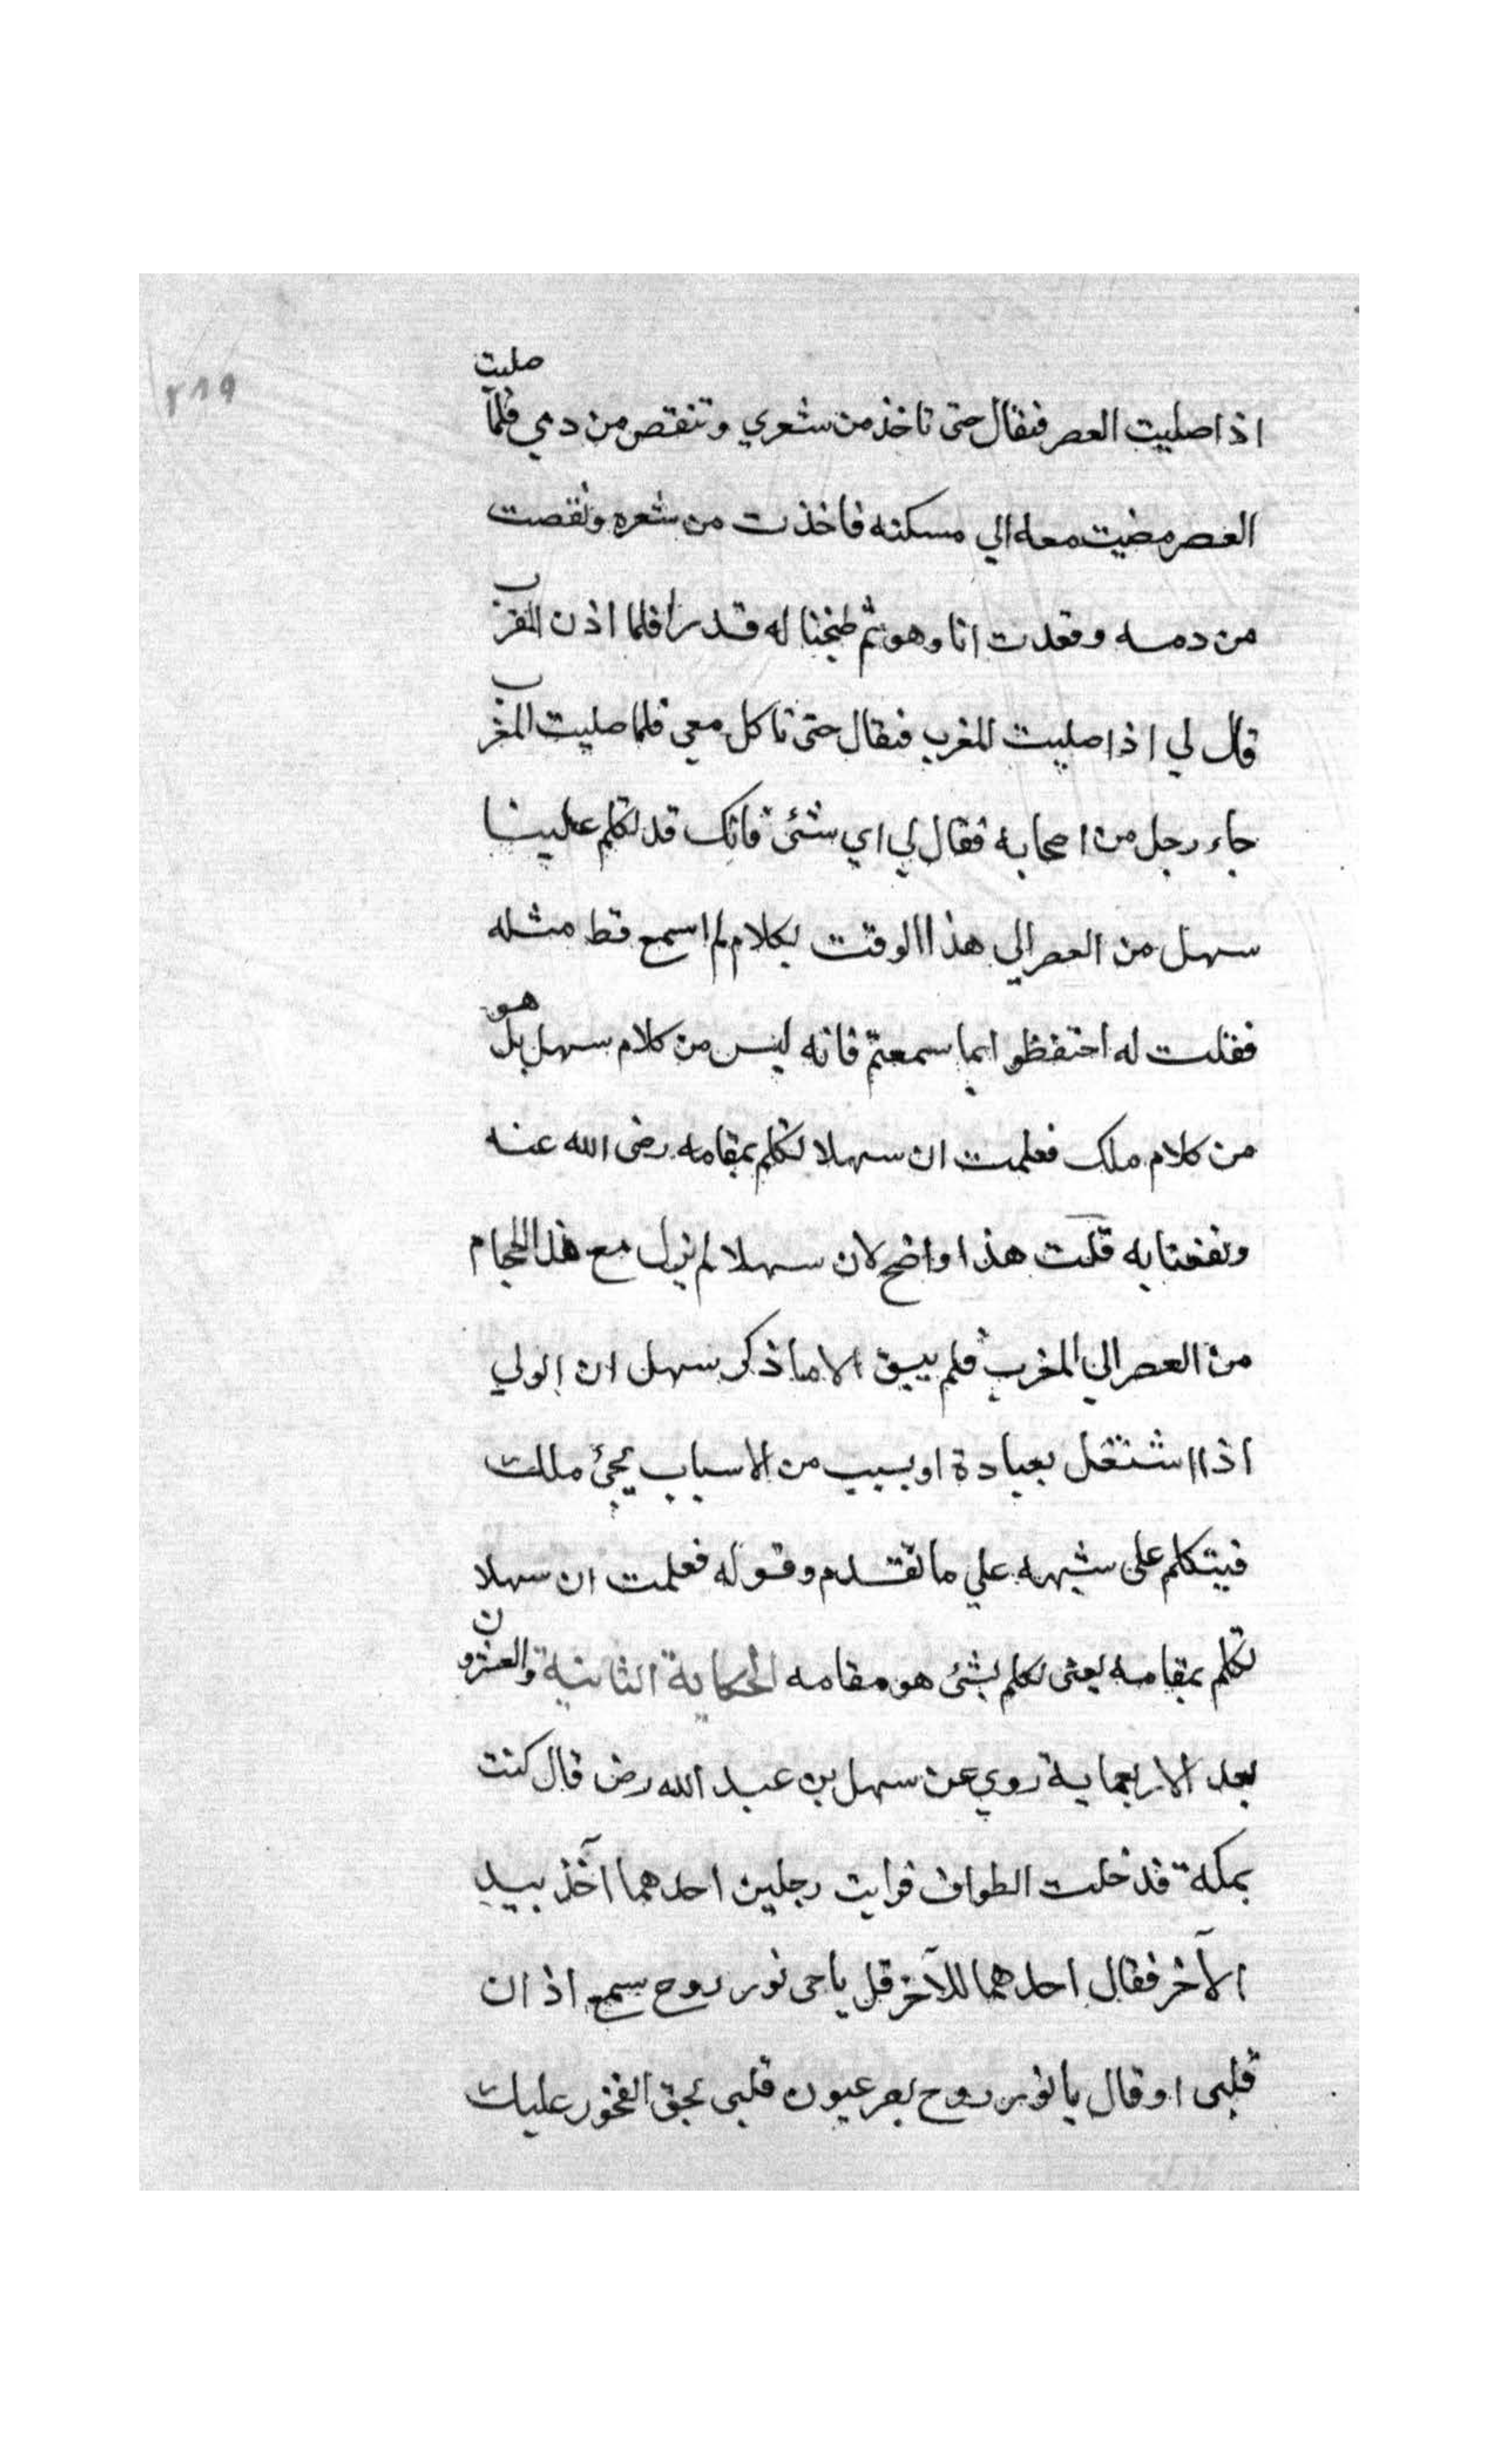 ٢٨٩
اذا صليت العصر فتعال حتى تاخذ من شعري وتنقص من دمي فلما صليت
العصر مضيت معه الي مسكنه فاخذت من شعره ونقصت
من دمه وقعدت انا وهو ثم طبخنا له قدرا فلما اذن المغرب
قال لي اذا صليت المغرب فتعال حتى تاكل معي فلما صليت المغرب
جاء رجل من اصحابه فقال لي اي شئ فاتك قد تكلم علينا
سهل من العصر الي هذا الوقت بكلام لم اسمع قط مثله
فقلت له احتفظوا بما سمعتم فانه ليس من كلام سهل بل هو
من كلام ملك فعلمت ان سهلا تكلم بمقامه رضى الله عنه
ونفعنا به قلت هذا واضح لان سهلا لم يزل مع هذا الحجام
من العصر الي المغرب فلم يبق الا ما ذكر سهل ان الولي
اذا اشتغل بعبادة او بسبب من الاسباب يجئ ملك
فيتكلم على شبهه علي ما تقدم وقوله فعلمت ان سهلا
تكلم بمقامه يعنى تكلم بشئ هو مقامه الحكاية الثانية والعشرون
بعد الاربعماية روي عن سهل بن عبد الله رض قال كنت
بمكة فدخلت الطواف فرايت رجلين احدهما آخذ بيد
الآخر فقال احدهما للآخر قل يا حى نور روح سمع اذان
قلبى او قال يا نور روح بصر عيون قلبى بحق الفخور عليك